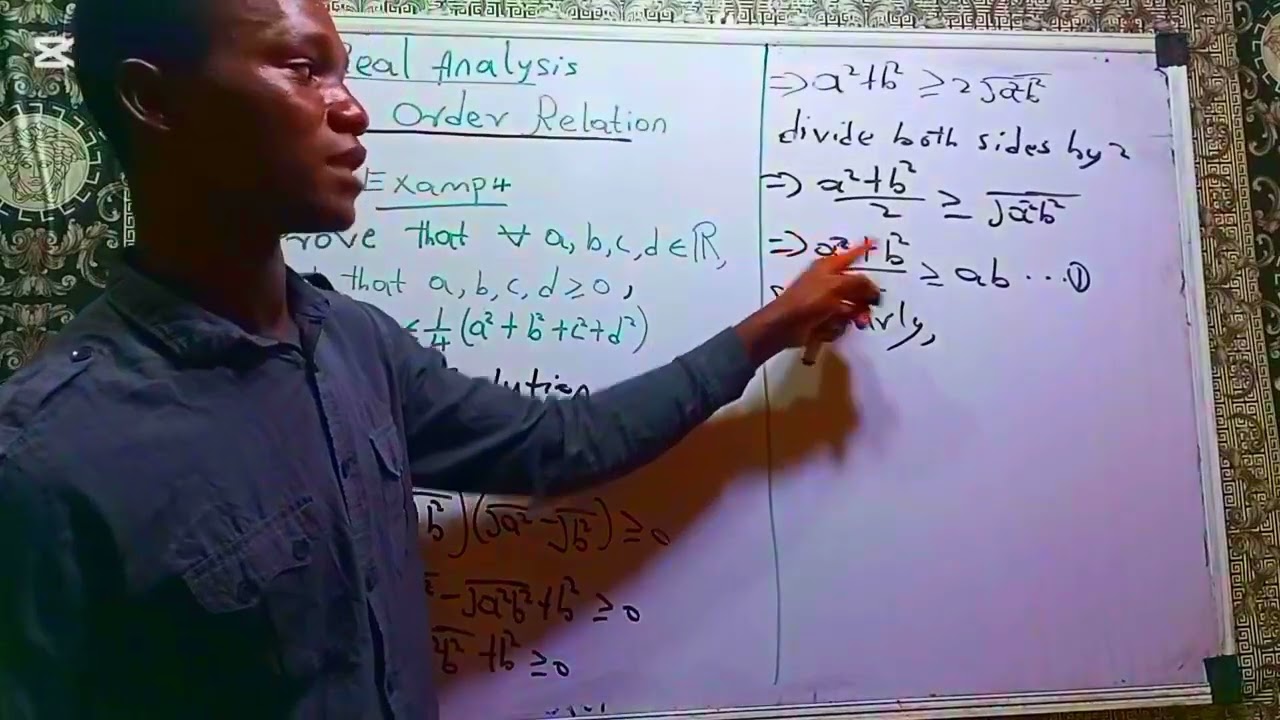 Real Analysis
Order Relation
Examp4
Prove that ∀ a, b, c, d ∈ ℝ,
that a, b, c, d ≥ 0,
≤ 1/4 (a² + b² + c² + d²)
√b²)(√a² - √b²) ≥ 0
- √a²b² + b² ≥ 0
+ b² ≥ 0
⇒ a² + b² ≥ 2√a²b²
divide both sides by 2
⇒ (a² + b²)/2 ≥ √a²b²
⇒ a² + b² ≥ ab ... ①